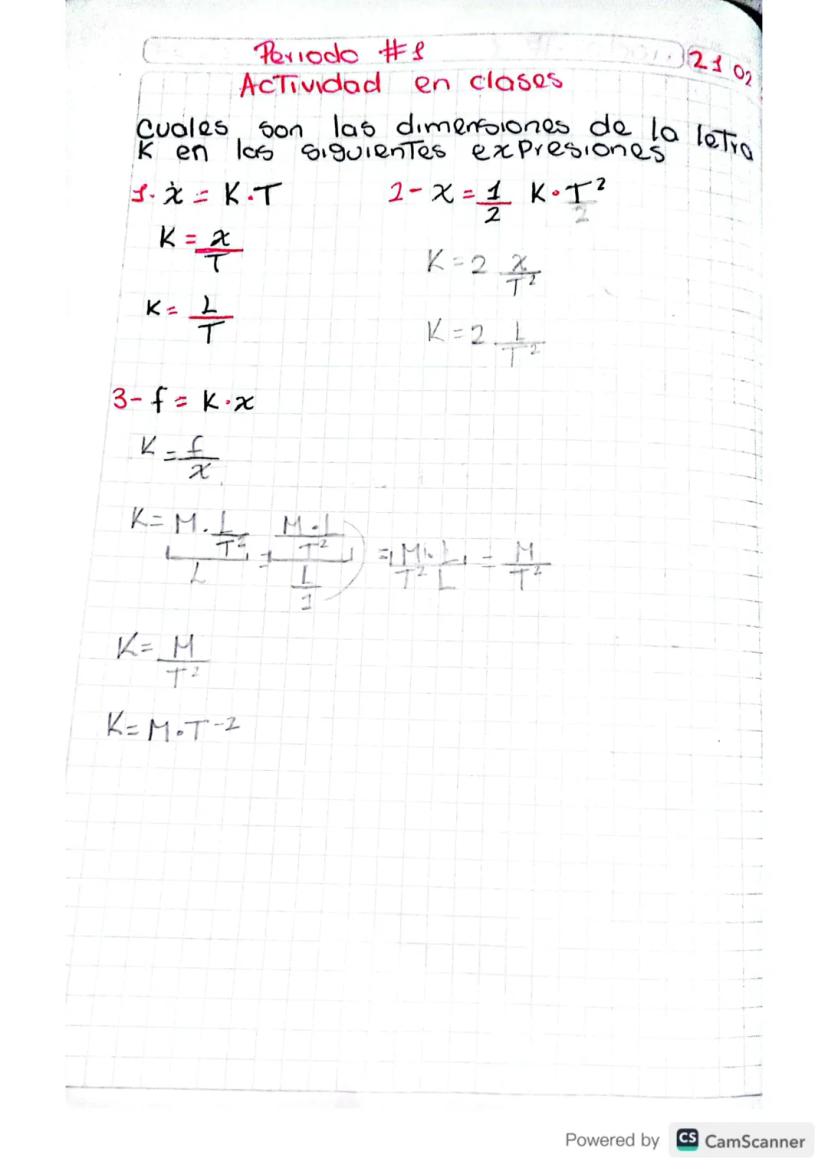 Periodo #1
21 02
Actividad en clases
Cuales son las dimensiones de la letra
K en las siguientes expresiones
1. ẋ = K·T
2- x = 1/2 K·T²/2
K = x/T
K = 2 x/T²
K = L/T
K = 2 L/T²
3- f = K·x
K = f/x
K = M·L/T² / L = M·L/T² / L/1 = M·L/T² L = M/T²
K = M/T²
K = M·T⁻²
Powered by CS CamScanner